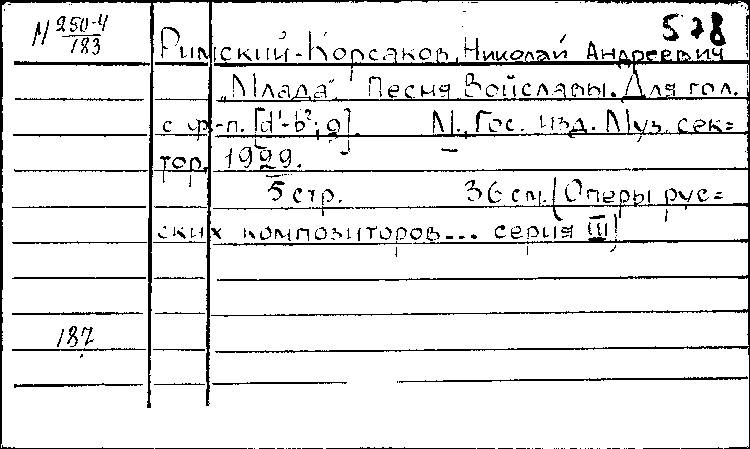 578
М 250-4
183
Римский-Корсаков, Николай Андреевич
„Млада". Песня Войславы. Для гол.
с ф-п. [d¹-b²; g]. М., Гос. изд. Муз. сек=
тор, 1929.
5 стр. 36 см. (Оперы рус=
ских композиторов... серия III)
187